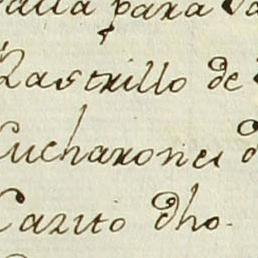 para
Rastrillo de
Cucharones
Cazito dho.